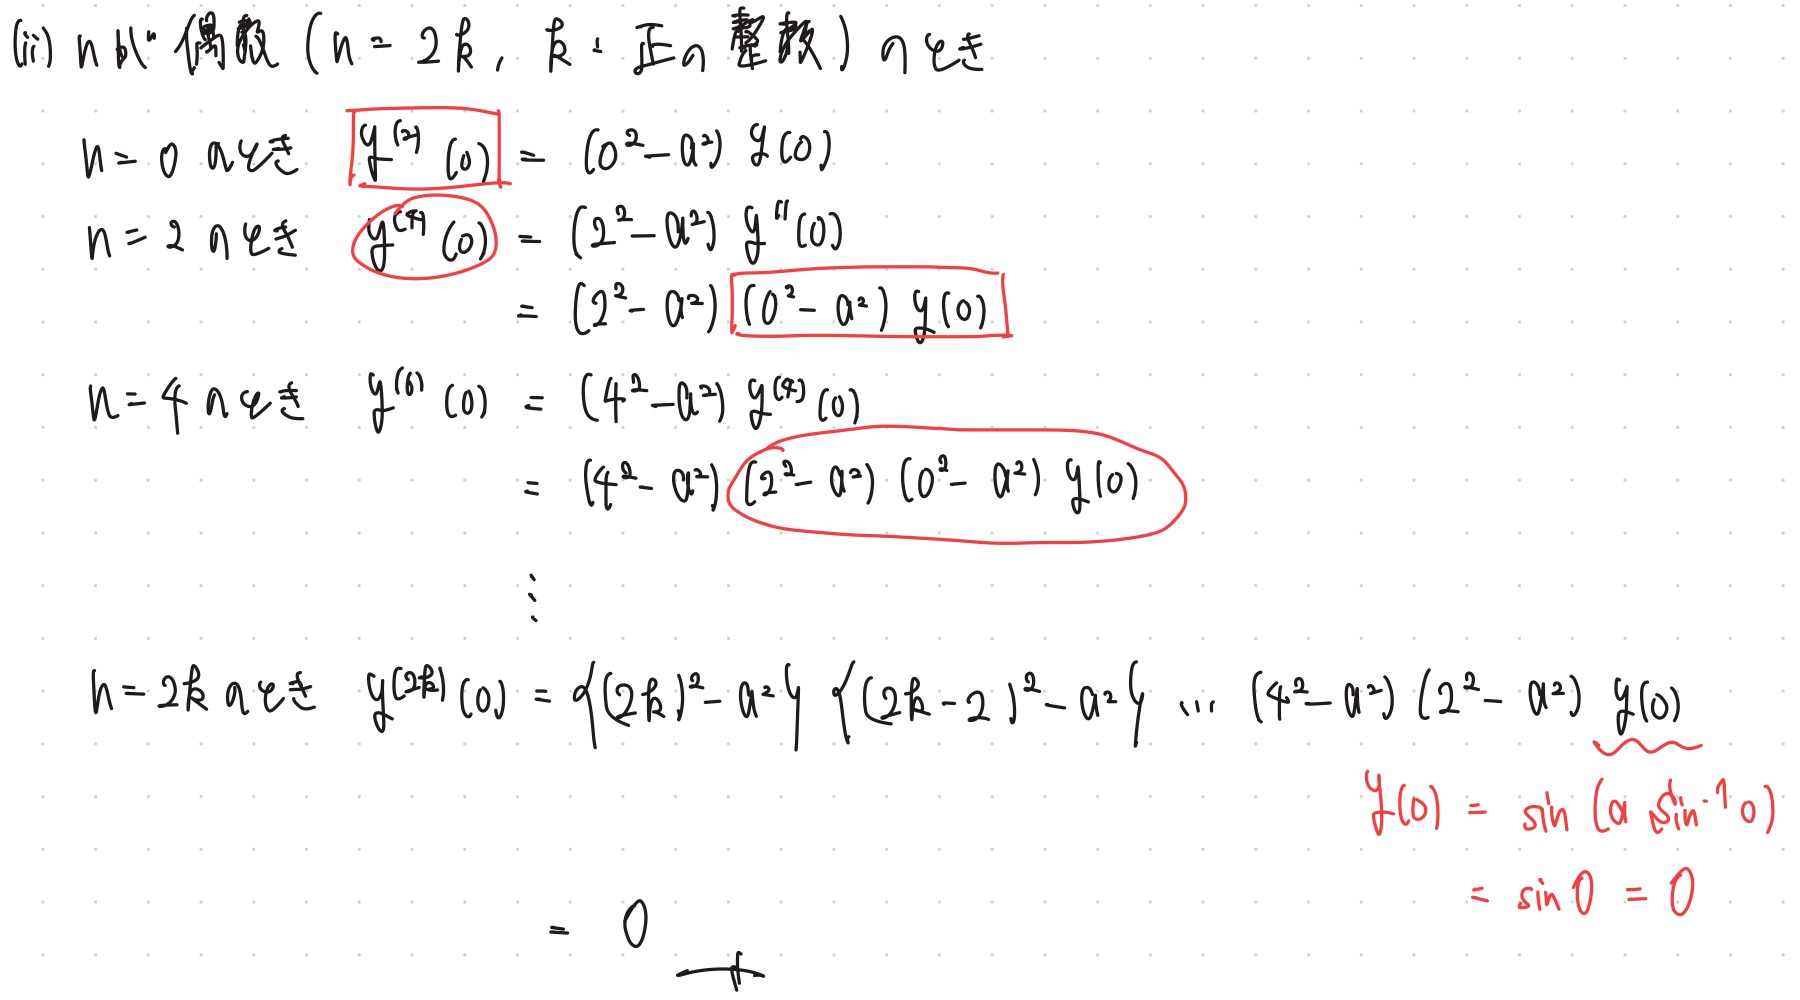 (ii) nが偶数 (n = 2k, k : 正の整数) のとき
n = 0 のとき y^(2) (0) = (0² − a²) y(0)
n = 2 のとき y^(4) (0) = (2² − a²) y''(0)
= (2² − a²) (0² − a²) y(0)
n = 4 のとき y^(6) (0) = (4² − a²) y^(4) (0)
= (4² − a²) (2² − a²) (0² − a²) y(0)
⋮
n = 2k のとき y^(2k) (0) = {(2k)² − a²} {(2k − 2)² − a²} … (4² − a²) (2² − a²) y(0)
y(0) = sin (a sin⁻¹ 0)
= sin 0 = 0
= 0